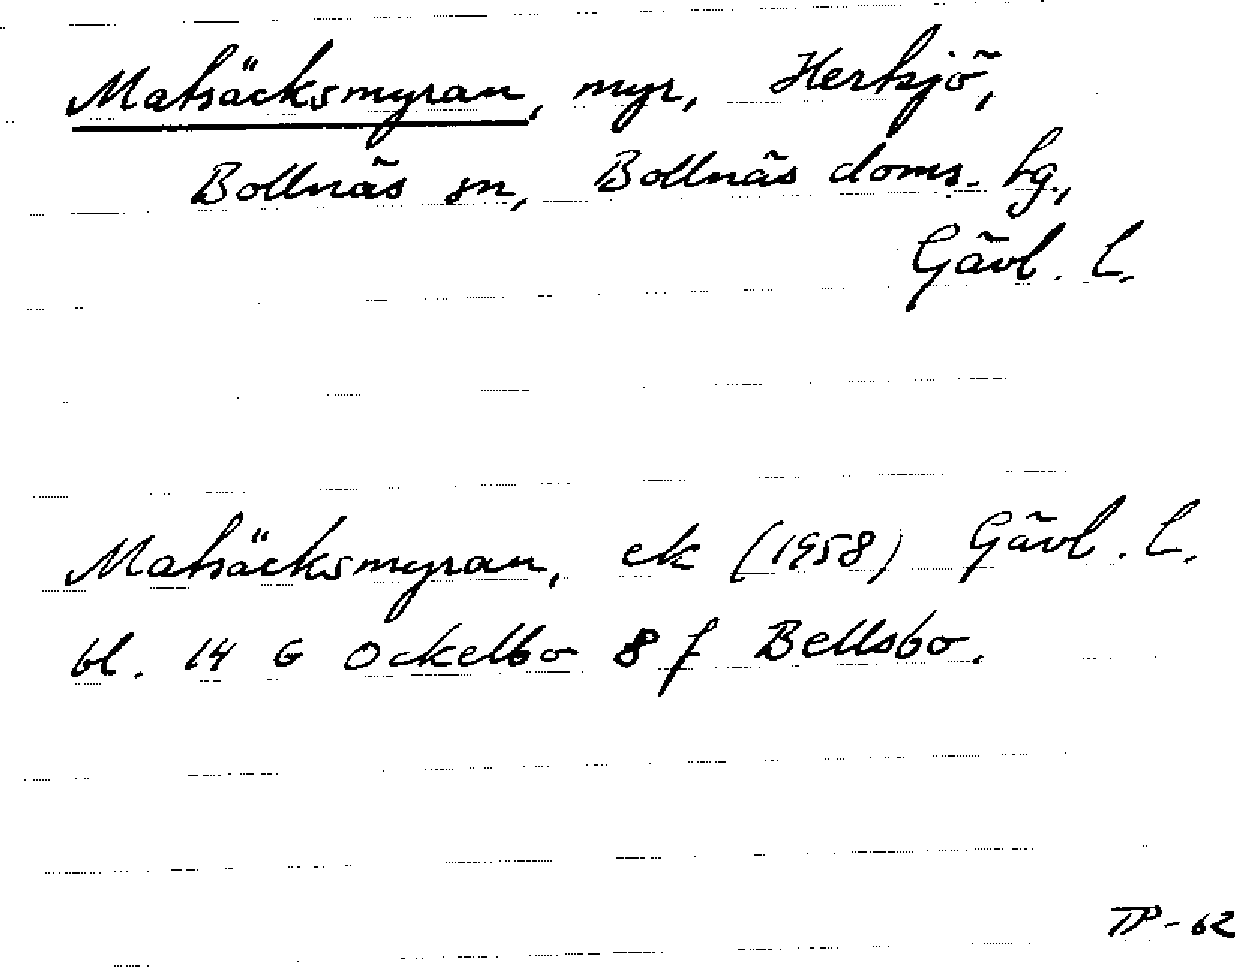 Matsäcksmyran, myr, Herkjö,
Bollnäs sn, Bollnäs doms. hg.,
Gävl. l.
Matsäcksmyran, ek (1958) Gävl. l.
bl. 14 G Ockelbo 8 f Bellsbo.
TP-62